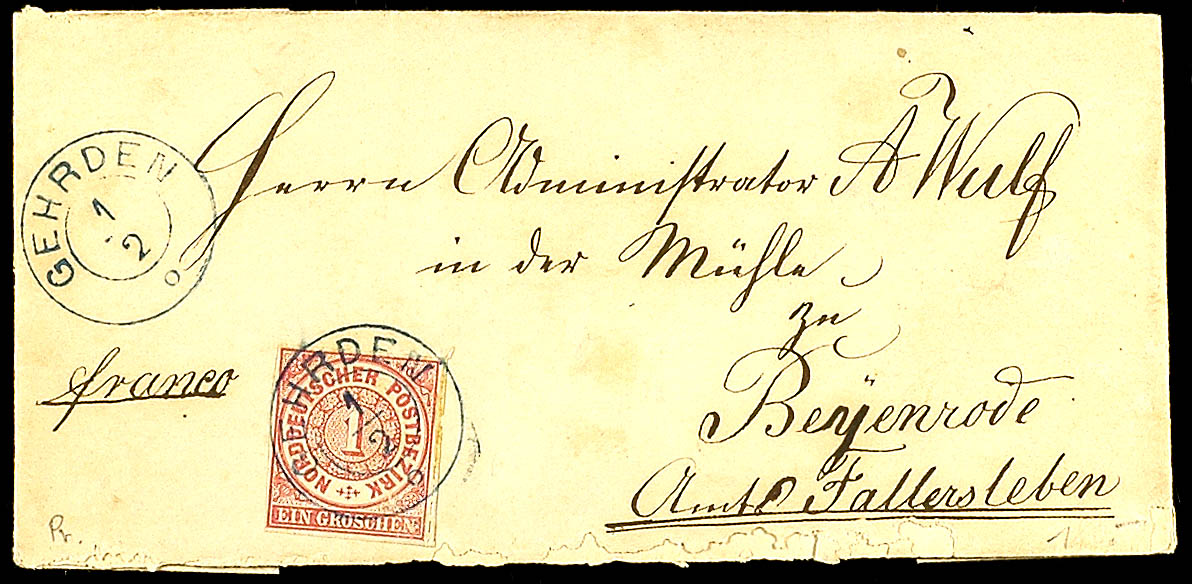 GEHRDEN
1/2
Herrn Administrator A Wulf
in der Mühle
zu
Beyenrode
Amts Fallersleben
franco
GEHRDEN
1/2
NORDDEUTSCHER POSTBEZIRK
1
EIN GROSCHEN
Pr.